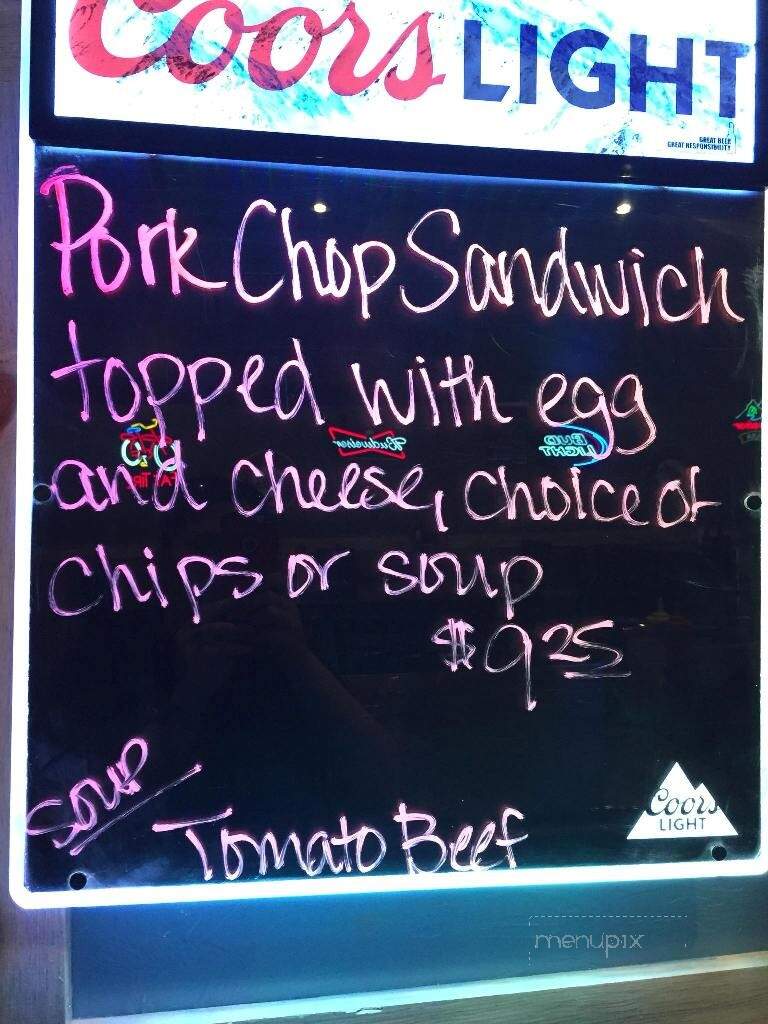 Coors LIGHT
GREAT BEER
GREAT RESPONSIBILITY
Pork Chop Sandwich
topped with egg
Budweiser
BUD
LIGHT
and cheese, choice of
chips or soup
$9.25
soup
Tomato Beef
Coors
LIGHT
menupix